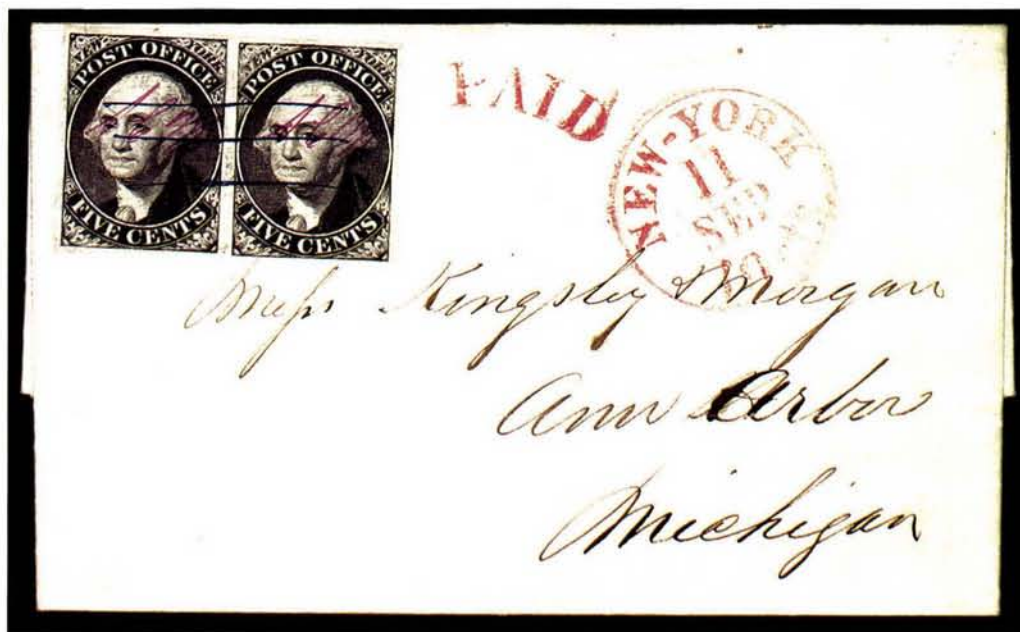 POST OFFICE
FIVE CENTS
POST OFFICE
FIVE CENTS
PAID
NEW-YORK
11
SEP
Messrs Kingsley & Morgan
Ann Arbor
Michigan